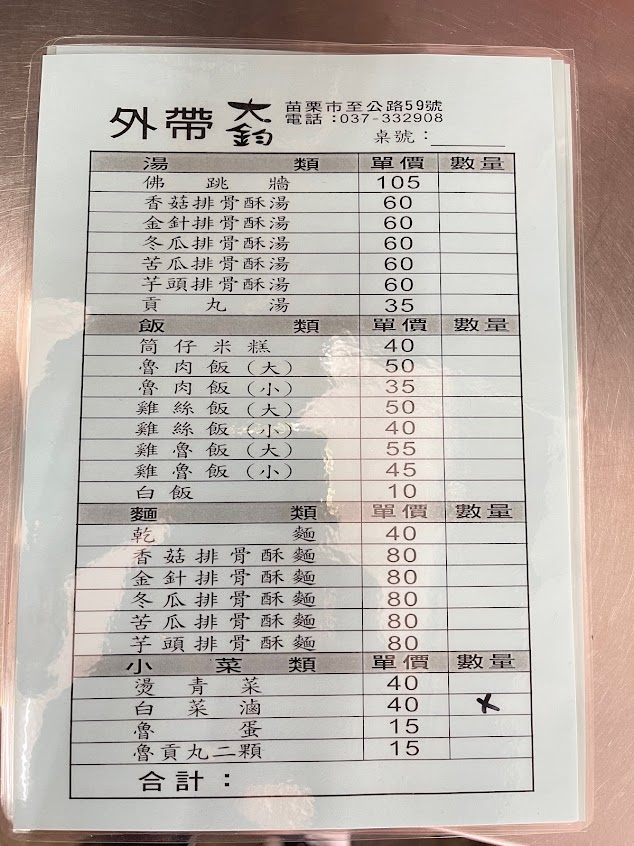 外帶 大鈞 苗栗市至公路59號
電話：037-332908
桌號：
湯類 單價 數量
佛跳牆 105
香菇排骨酥湯 60
金針排骨酥湯 60
冬瓜排骨酥湯 60
苦瓜排骨酥湯 60
芋頭排骨酥湯 60
貢丸湯 35
飯類 單價 數量
筒仔米糕 40
魯肉飯（大） 50
魯肉飯（小） 35
雞絲飯（大） 50
雞絲飯（小） 40
雞魯飯（大） 55
雞魯飯（小） 45
白飯 10
麵類 單價 數量
乾麵 40
香菇排骨酥麵 80
金針排骨酥麵 80
冬瓜排骨酥麵 80
苦瓜排骨酥麵 80
芋頭排骨酥麵 80
小菜類 單價 數量
燙青菜 40
白菜滷 40 x
魯蛋 15
魯貢丸二顆 15
合計：